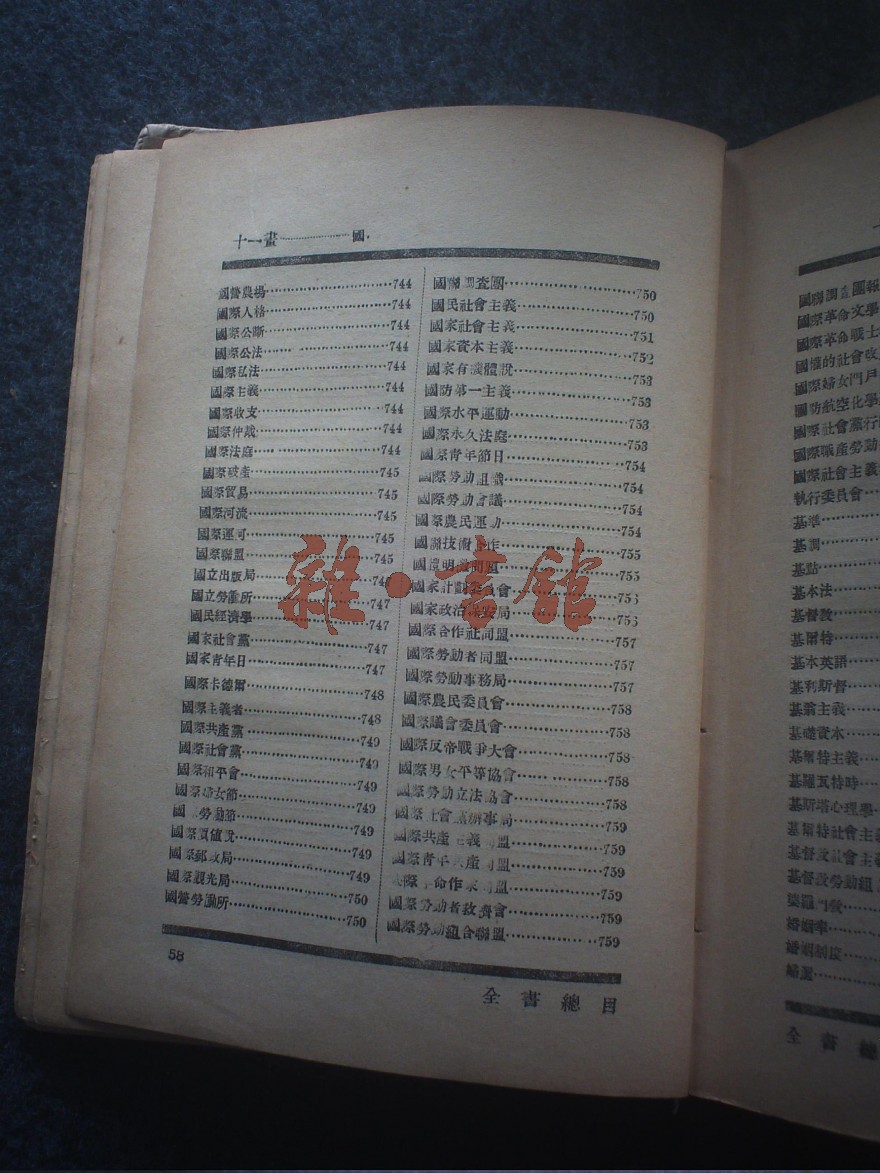 十一畫…………國
國營農場…………744
國際人格…………744
國際公斷…………744
國際公法…………744
國際私法…………744
國際主義…………744
國際收支…………744
國際仲裁…………744
國際法庭…………744
國際破產…………745
國際貿易…………745
國際河流…………745
國際運河…………745
國際聯盟…………745
國立出版局…………
國立勞働所…………747
國民經濟學…………747
國家社會黨…………747
國家青年日…………747
國際卡德爾…………748
國際主義者…………748
國際共產黨…………749
國際社會黨…………749
國際和平會…………749
國際婦女節…………749
國際勞動節…………749
國際價値說…………749
國際郵政局…………749
國際觀光局…………750
國營勞働所…………750
國聯調查團…………750
國民社會主義…………750
國家社會主義…………751
國家資本主義…………752
國家有機體說…………753
國防第一主義…………753
國際水平運動…………753
國際永久法庭…………753
國際青年節日…………754
國際勞動組織…………754
國際勞動會議…………754
國際農民運動…………754
國聯技術合作…………755
國
國家計劃委員會…………
國家政治保安局…………756
國際合作社同盟…………757
國際勞動者同盟…………757
國際勞動事務局…………757
國際農民委員會…………758
國際議會委員會…………758
國際反帝戰爭大會…………758
國際男女平等協會…………758
國際勞動立法協會…………758
國際社會黨辦事局…………759
國際共產主義同盟…………759
國際青年共產同盟…………759
國際革命作家同盟…………759
國際勞動者救濟會…………759
國際勞動組合聯盟…………759
58
全書總目
雜·書館
國聯調查團報
國際革命文學
國際革命戰士
國際的社會改
國際婦女門戶
國防航空化學
國際社會黨行
國際職產勞動
國際社會主義
執行委員會
基準
基調
基點
基本法
基督教
基爾特
基本英語
基利斯督
基翁主義
基礎資本
基爾特主義
基羅瓦特時
基斯塔心理學
基爾特社會主
基督教社會主
基督教勞動組
婚姻率
婚姻制度
全書總